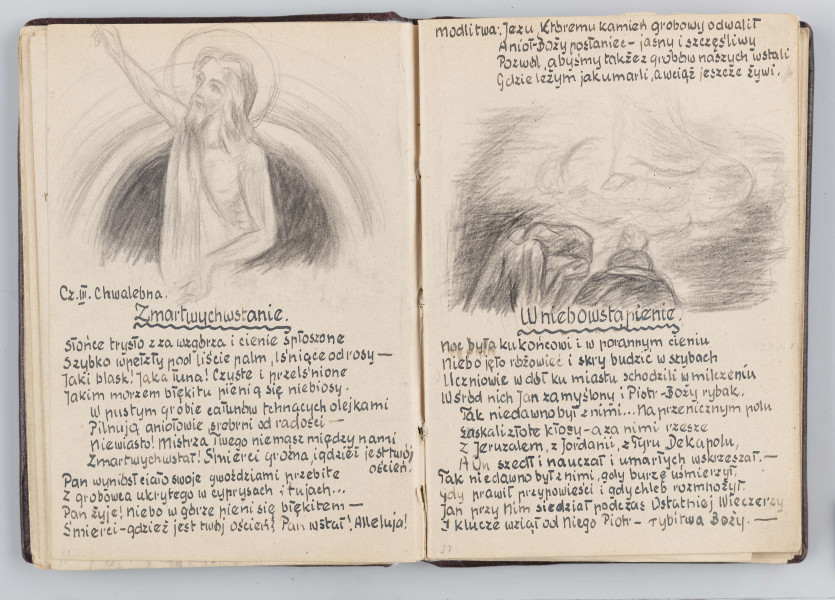 Cz. III. Chwalebna.
Zmartwychwstanie.
Słońce trysło zza wzgórza i cienie spłoszone
Szybko wpełzły pod liście palm, lśniące od rosy —
Jaki blask! Jaka łuna! Czyste i przelśnione
Jakim morzem błękitu pienią się niebiosy.
W pustym grobie całunów tchnących olejkami
Pilnują aniołowie srebrni od radości —
Niewiasto! Mistrza Twego niemasz między nami
Zmartwychwstał! Śmierci groźna, gdzież jest twój
oścień.
Pan wyniósł ciało swoje gwoździami przebite
Z grobowca ukrytego w cyprysach i tujach...
Pan żyje! Niebo w górze pieni się błękitem —
Śmierci - gdzież jest twój oścień? Pan wstał! Alleluja!
modlitwa: Jezu, Któremu kamień grobowy odwalił
Anioł-Boży posłaniec - jasny i szczęśliwy
Pozwól, abyśmy także z grobów naszych wstali
Gdzie leżym jak umarli, a wciąż jeszcze żywi.
Wniebowstąpienie.
Noc była ku końcowi i w porannym cieniu
Niebo jęło różowieć i skry budzić w szybach
Uczniowie w dół ku miastu schodzili w milczeniu
Wśród nich Jan zamyślony i Piotr - Boży rybak.
Tak niedawno był z nimi... Na przenicznym polu
Łaskali złote kłosy - a za nimi rzesze
Z Jeruzalem, z Jordanii, z Tyru, Dekapolu,
A On szedł i nauczał i umarłych wskrzeszał. —
Tak niedawno był z nimi, gdy burzę uśmierzył,
Gdy prawił przypowieści i gdy chleb rozmnożył.
Jan przy Nim siedział podczas Ostatniej Wieczerzy
I klucze wziął od Niego Piotr - rybitwa Boży. —